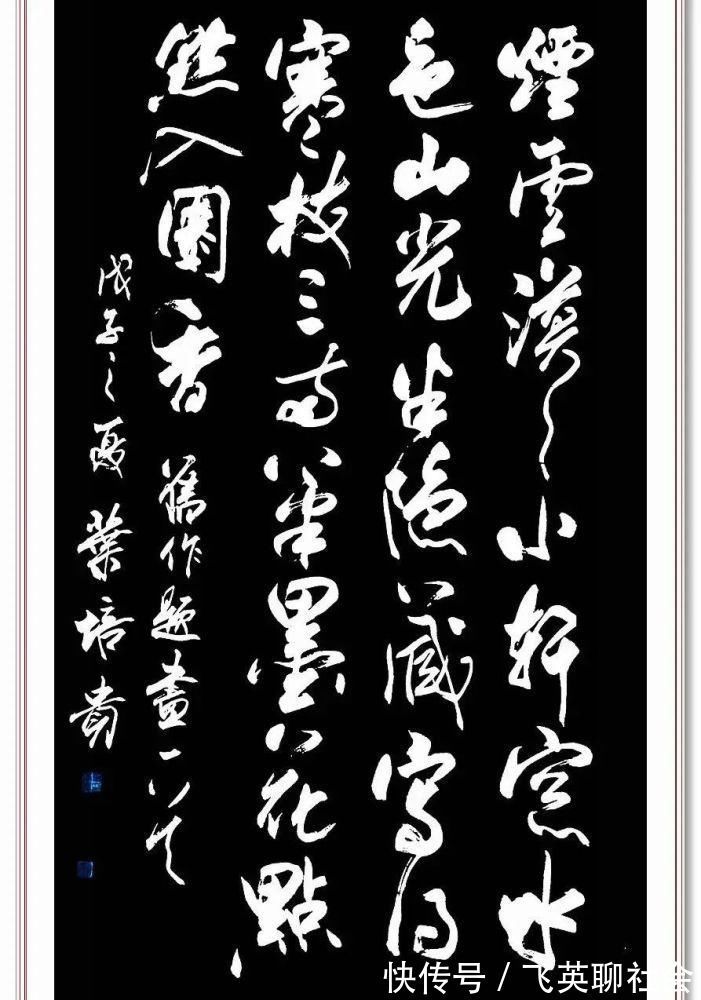 煙雲漠漠小軒窓水
色山光坐隱藏寫得
寒枝三兩筆墨花點
點入園香 舊作題畫一首
戊子之夏 葉培貴
快传号 / 飞英聊社会